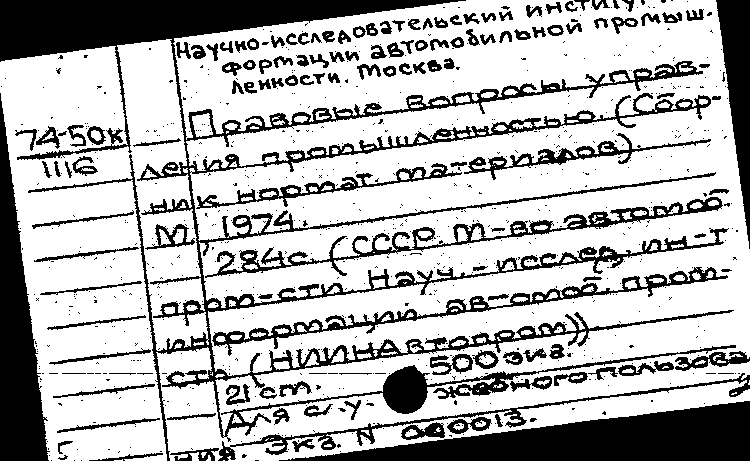 Научно-исследовательский институт
формации автомобильной промыш-
ленности. Москва.
74-50к
1116
Правовые вопросы управ-
ления промышленностью. (Сбор-
ник нормат. материалов).
М., 1974.
284с. (СССР. М-во автомоб.
пром-сти. Науч.-исслед. ин-т
информации автомоб. пром-
сти (НИИНАвтопром))
21 cm. 500 экз.
Для с/.у. жебного пользова
ния. Экз. N 000013.